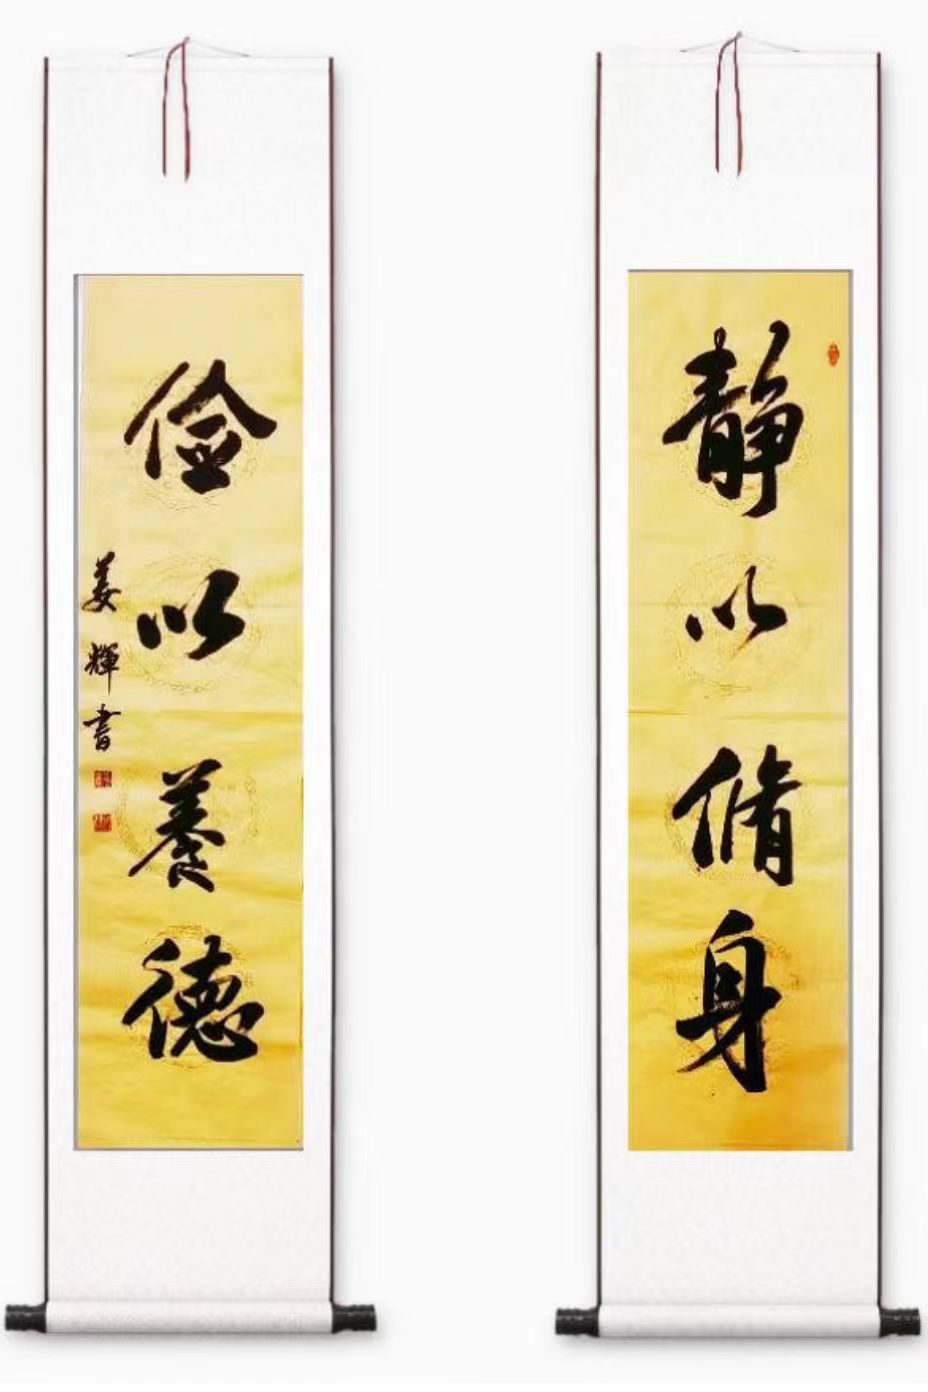 靜以脩身
儉以養德
姜輝書